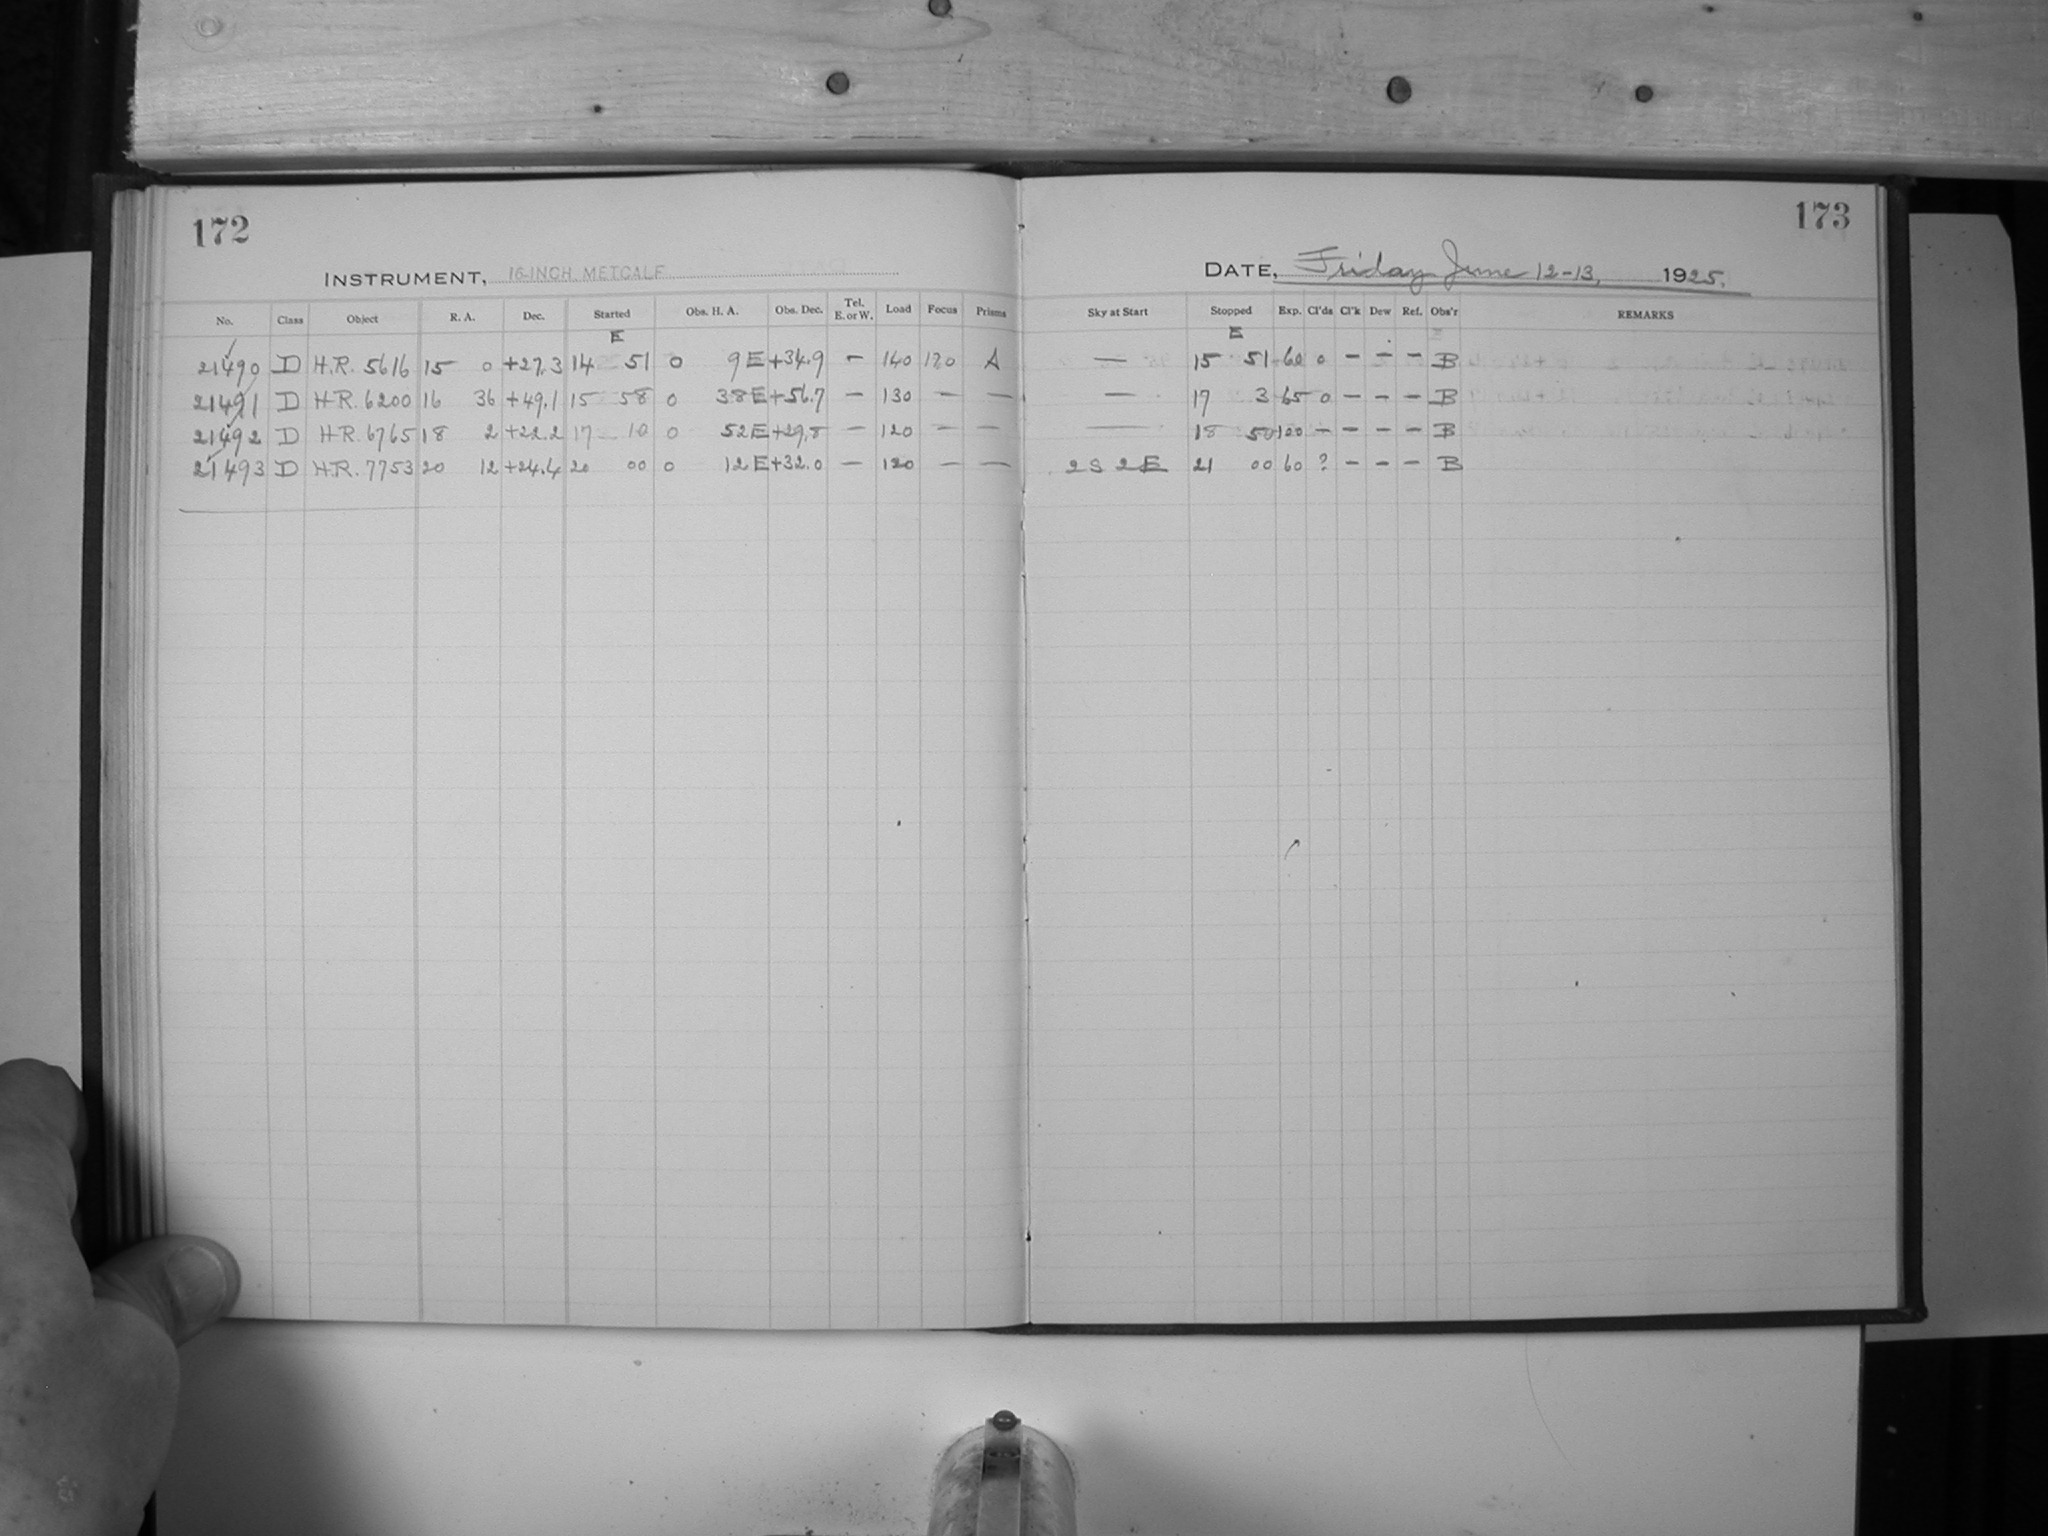 172
INSTRUMENT, 16-INCH METCALF
No. Class Object R. A. Dec. Started Obs. H. A. Obs. Dec. Tel. E. or W. Load Focus Prisms
E
21490 D H.R. 5616 15 0 +27.3 14 51 0 9 E +34.9 - 140 17.0 A
21491 D H.R. 6200 16 36 +49.1 15 58 0 38 E +56.7 - 130 - -
21492 D H.R. 6765 18 2 +22.2 17 10 0 52 E +29.8 - 120 - -
21493 D H.R. 7753 20 12 +24.4 20 00 0 12 E +32.0 - 120 - -
173
DATE, Friday June 12-13, 1925.
Sky at Start Stopped Exp. Cl'ds Cl'k Dew Ref. Obs'r REMARKS
E
— 15 51 60 0 - - - B
— 17 3 65 0 - - - B
— 18 50 100 - - - - B
2S 2E 21 00 60 ? - - - B